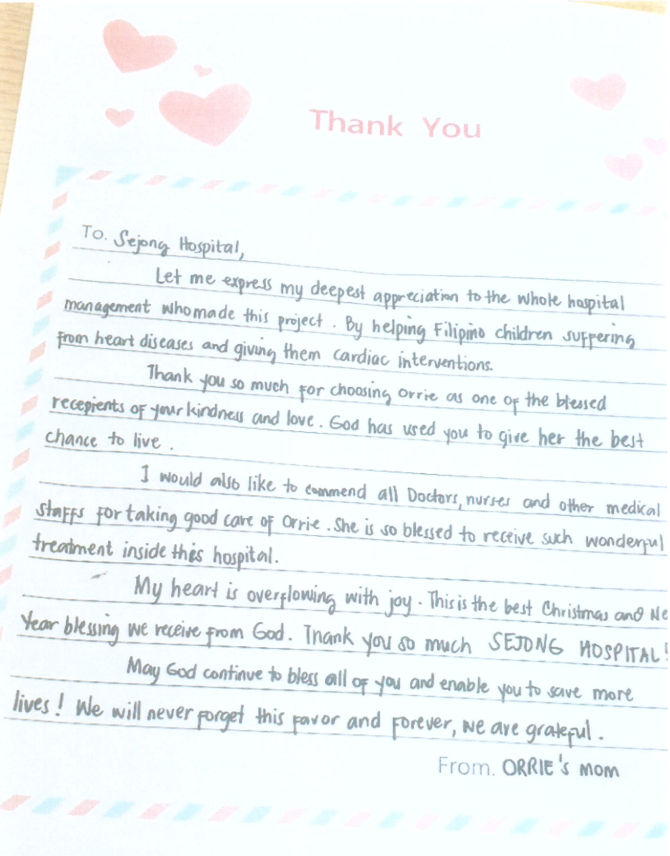 Thank You
To. Sejong Hospital,
Let me express my deepest appreciation to the whole hospital
management who made this project. By helping Filipino children suffering
from heart diseases and giving them cardiac interventions.
Thank you so much for choosing Orrie as one of the blessed
recepients of your kindness and love. God has used you to give her the best
chance to live.
I would also like to commend all Doctors, nurses and other medical
staffs for taking good care of Orrie. She is so blessed to receive such wonderful
treatment inside this hospital.
My heart is overflowing with joy. This is the best Christmas and Ne
Year blessing we receive from God. Thank you so much SEJONG HOSPITAL!
May God continue to bless all of you and enable you to save more
lives! We will never forget this favor and forever, we are grateful.
From. ORRIE's mom